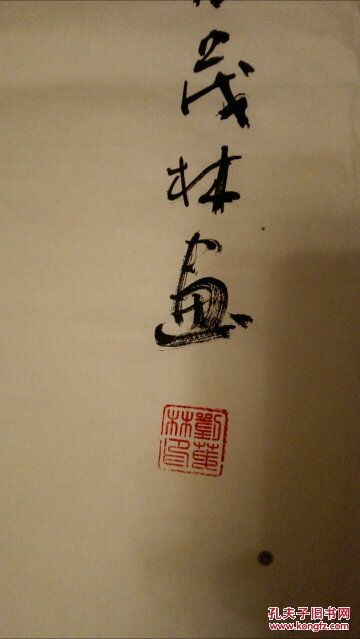 茂林畫
劉茂林印
孔夫子旧书网
www.kongfz.com